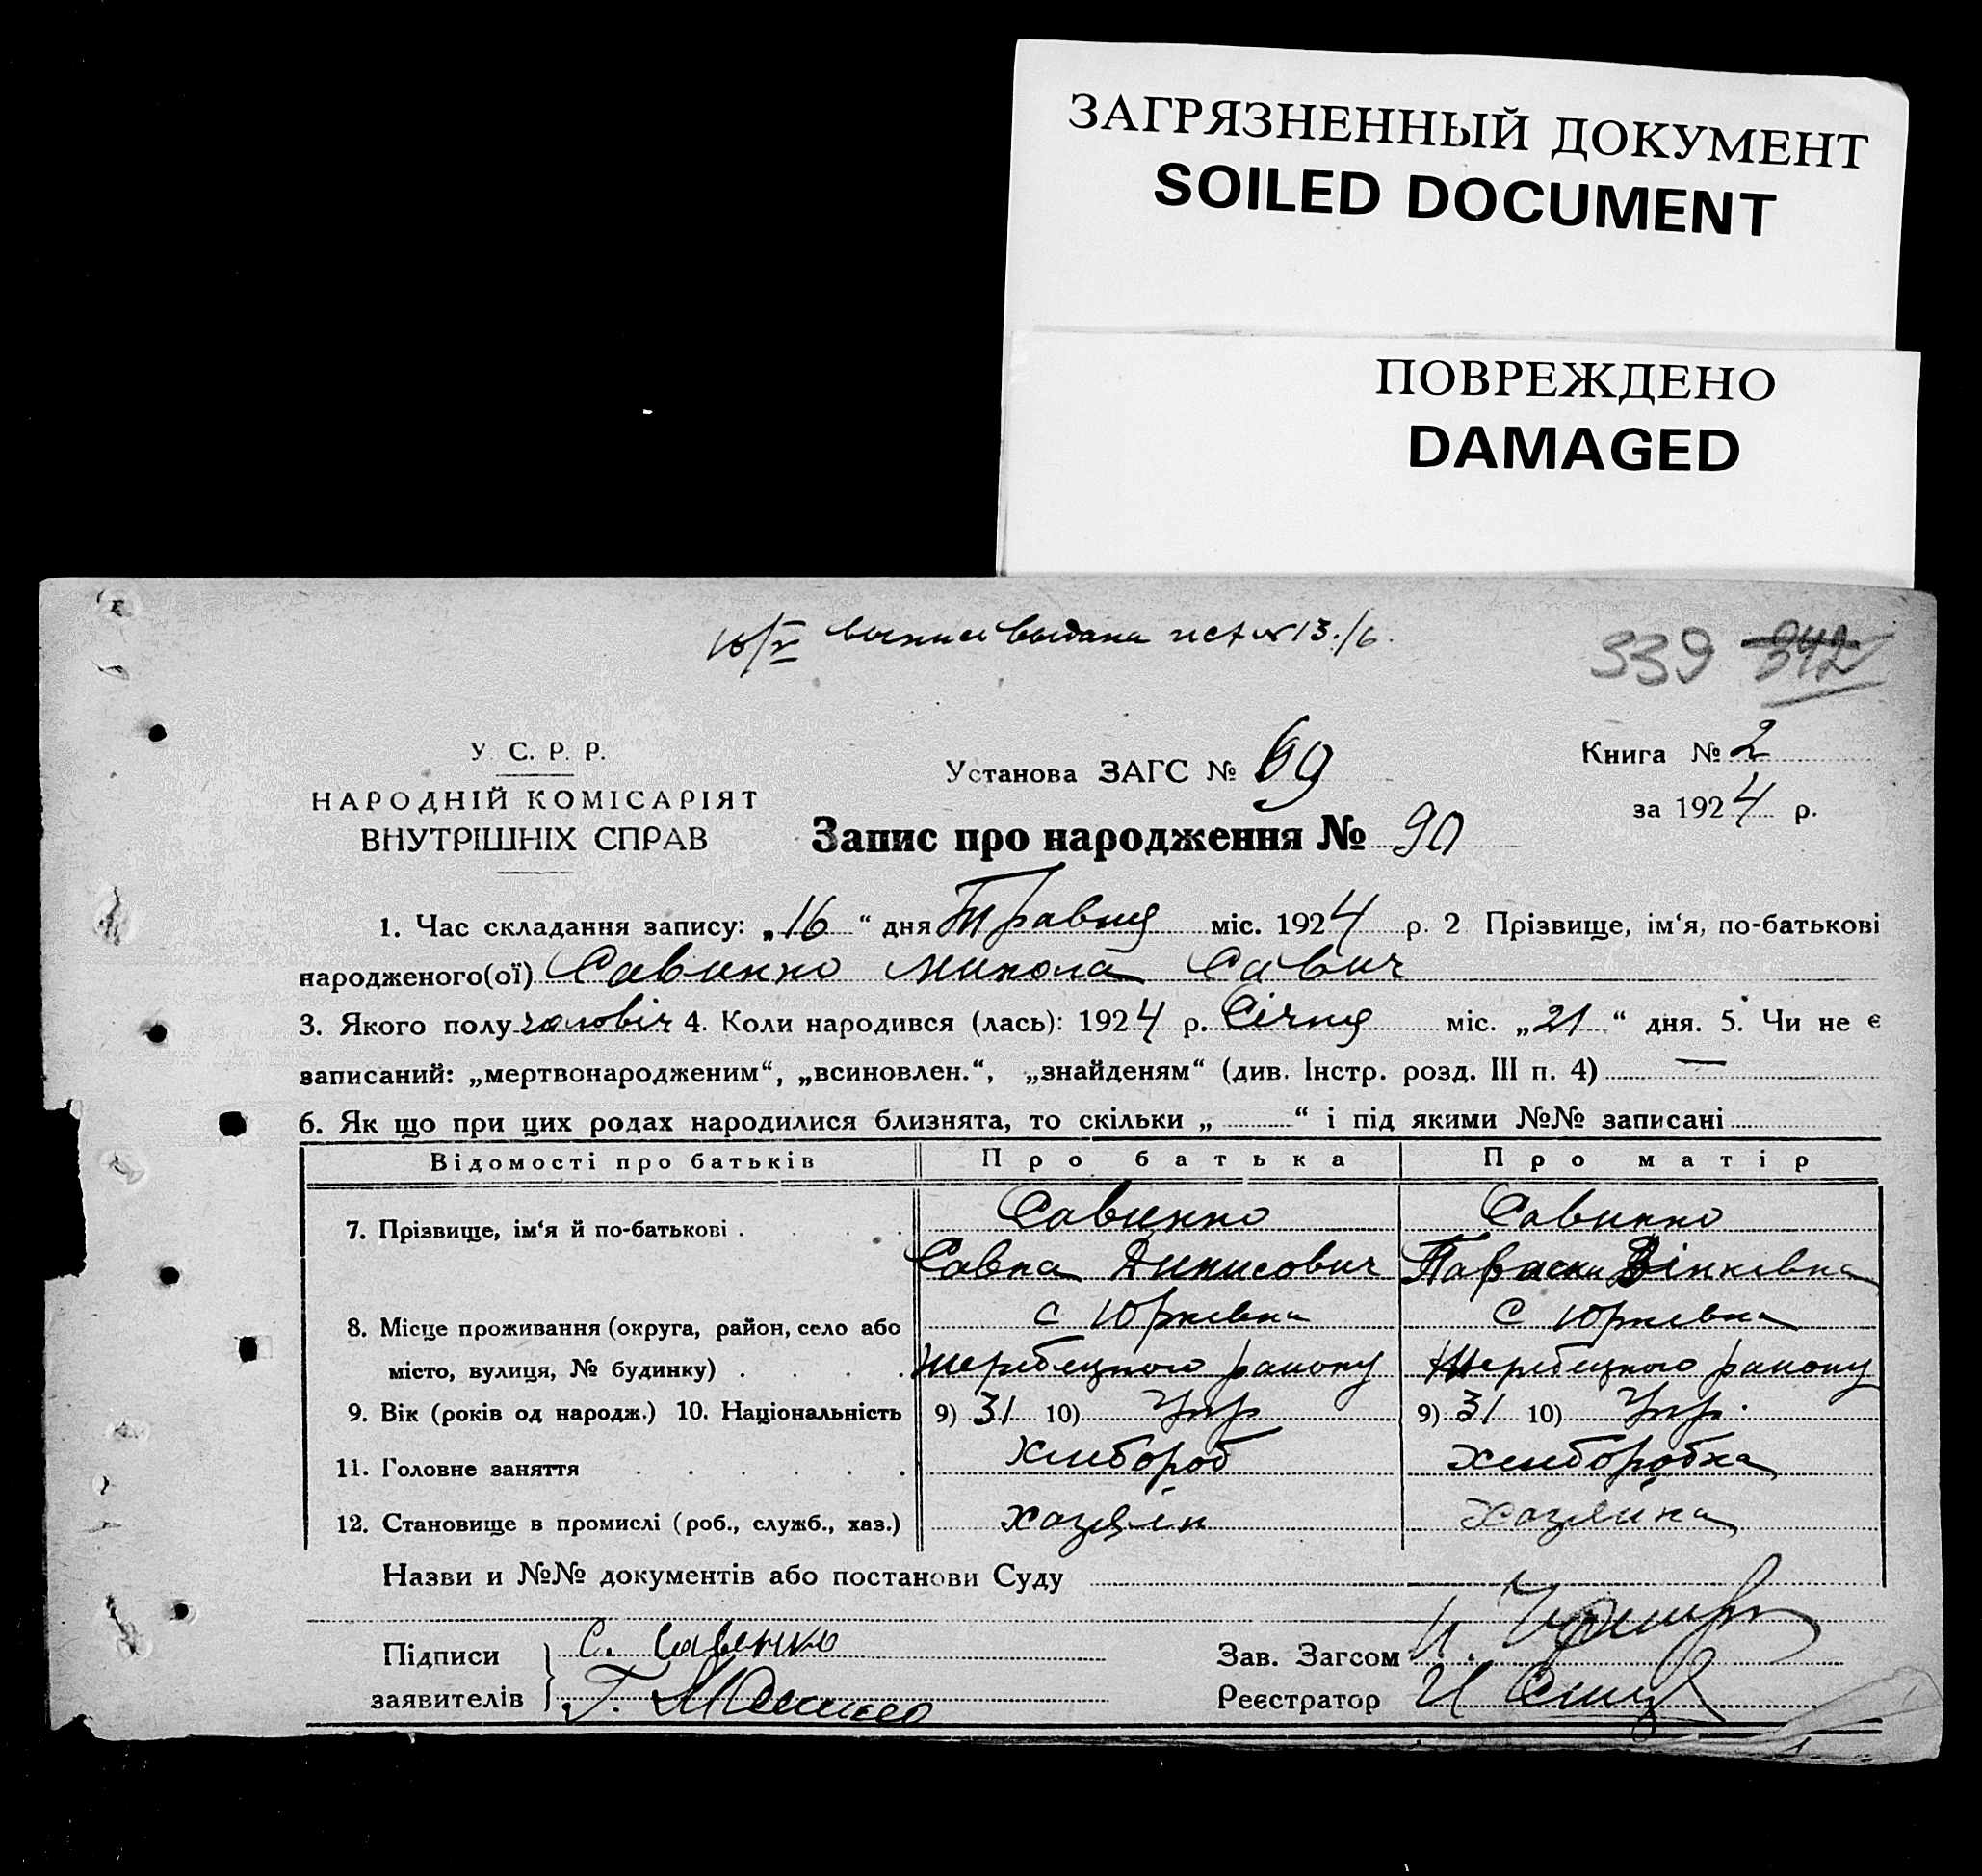 ЗАГРЯЗНЕННЫЙ ДОКУМЕНТ
SOILED DOCUMENT
ПОВРЕЖДЕНО
DAMAGED
выдана 13./6.
339 342
У. С. Р. Р.
НАРОДНІЙ КОМІСАРІЯТ
ВНУТРІШНІХ СПРАВ
Установа ЗАГС № 69
Запис про народження № 90
Книга № 2
за 1924 р.
1. Час складання запису: „16“ дня Травня міс. 1924 р. 2 Прізвище, ім‘я, по-батькові
народженого(ої) Савинко Микола Савич
3. Якого полу чоловіч 4. Коли народився (лась): 1924 р. Січня міс. „21“ дня. 5. Чи не є
записаний: „мертвонародженим“, „всиновлен.“, „знайденям“ (див. Інстр. розд. III п. 4) —
6. Як що при цих родах народилися близнята, то скільки „ “ і під якими №№ записані
Відомості про батьків Про батька Про матір
7. Прізвище, ім‘я й по-батькові . Савинко Савинко
Савка Динисович Параска
8. Місце проживання (округа, район, село або с Юрківка с Юрківка
місто, вулиця, № будинку) . Жеребецького району Жеребецького району
9. Вік (років од народж.) 10. Національність 9) 31 10) Укр 9) 31 10) Укр.
11. Головне заняття хлибороб хлиборобка
12. Становище в промислі (роб., служб., хаз.) хазяїн хазяйка
Назви и №№ документів або постанови Суду
Підписи С. Савенко
заявителів Г.
Зав. Загсом И.
Реєстратор И